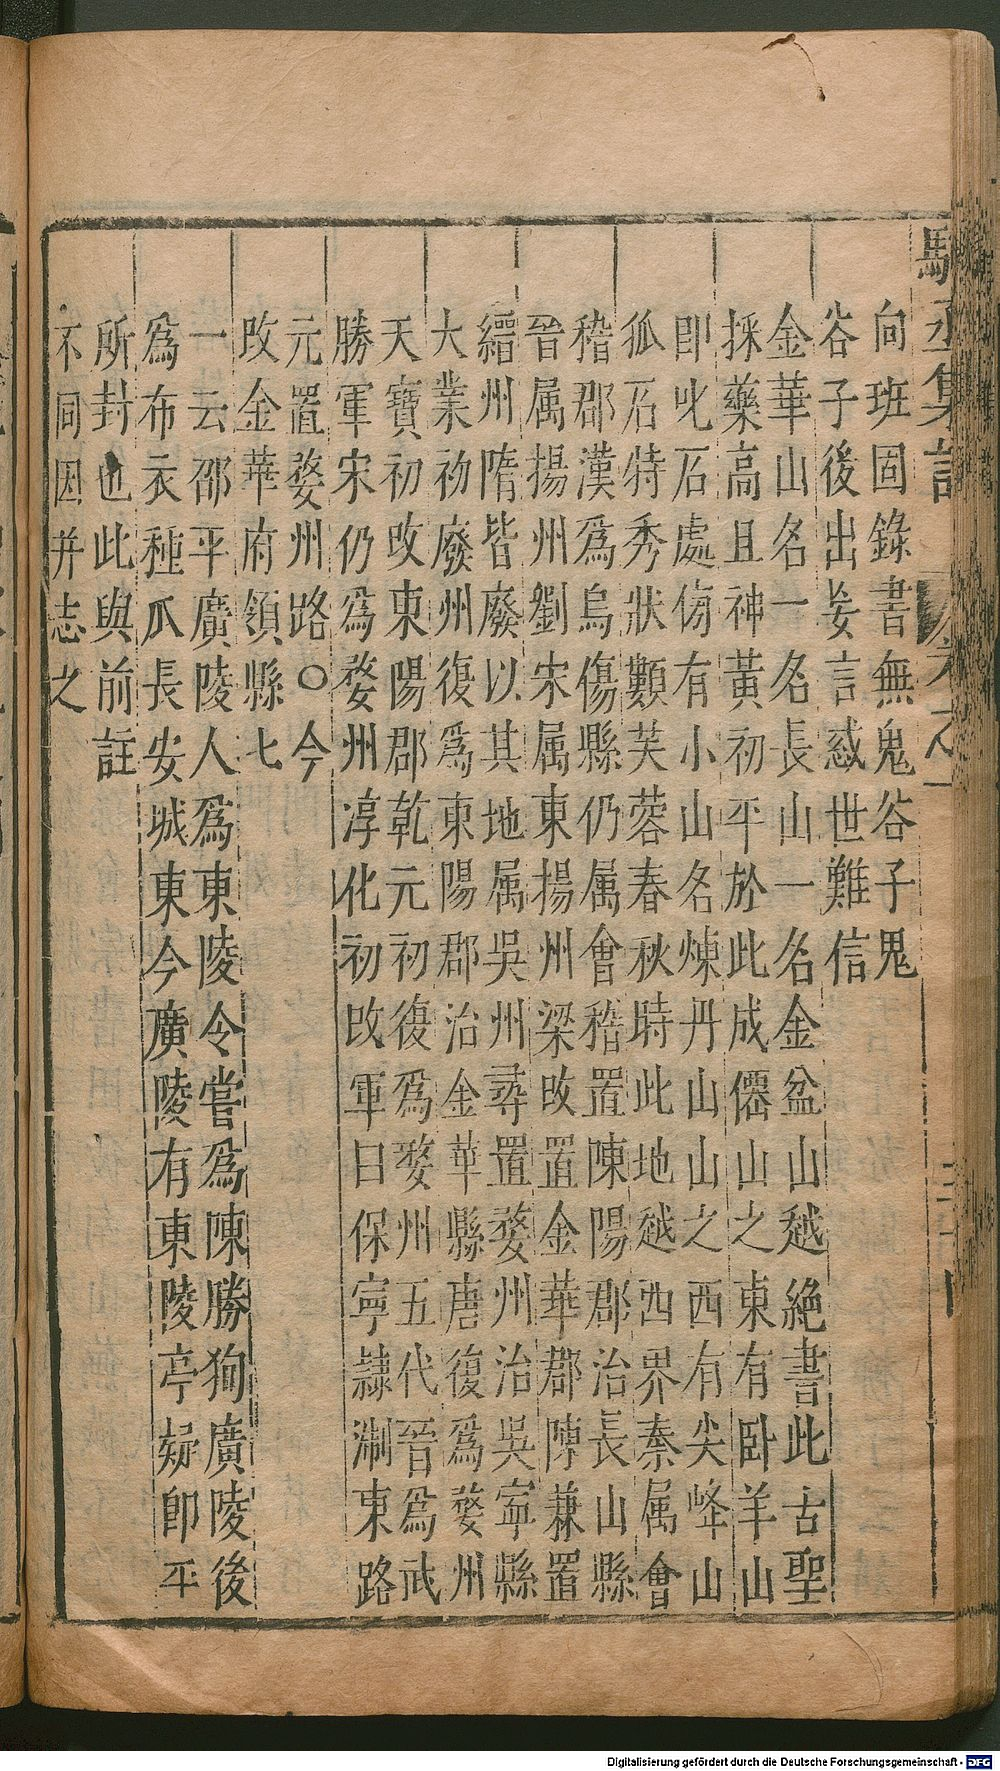 駱丞集註 卷之一
向班固錄書無鬼谷子鬼
谷子後出妄言惑世難信
金華山名一名長山一名金盆山越絶書此古聖
採藥高且神黃初平於此成僊山之東有卧羊山
即叱石處傍有小山名煉丹山山之西有尖峰山
孤石特秀狀顆芙蓉春秋時此地越西界秦属會
稽郡漢爲烏傷縣仍属會稽置陳陽郡治長山縣
晉属揚州劉宋属東揚州梁攺置金華郡陳兼置
縉州隋皆廢以其地属吳州尋置婺州治吳寧縣
大業初廢州復爲東陽郡治金華縣唐復爲婺州
天寶初攺東陽郡乾元初復爲婺州五代晉爲武
勝軍宋仍爲婺州淳化初攺軍曰保寧隷淛東路
元置婺州路○今
攺金華府領縣七
一云邵平廣陵人爲東陵令嘗爲陳勝狥廣陵後
爲布衣種瓜長安城東今廣陵有東陵亭疑卽平
所封也此與前註
不同因并志之
Digitalisierung gefördert durch die Deutsche Forschungsgemeinschaft - DFG